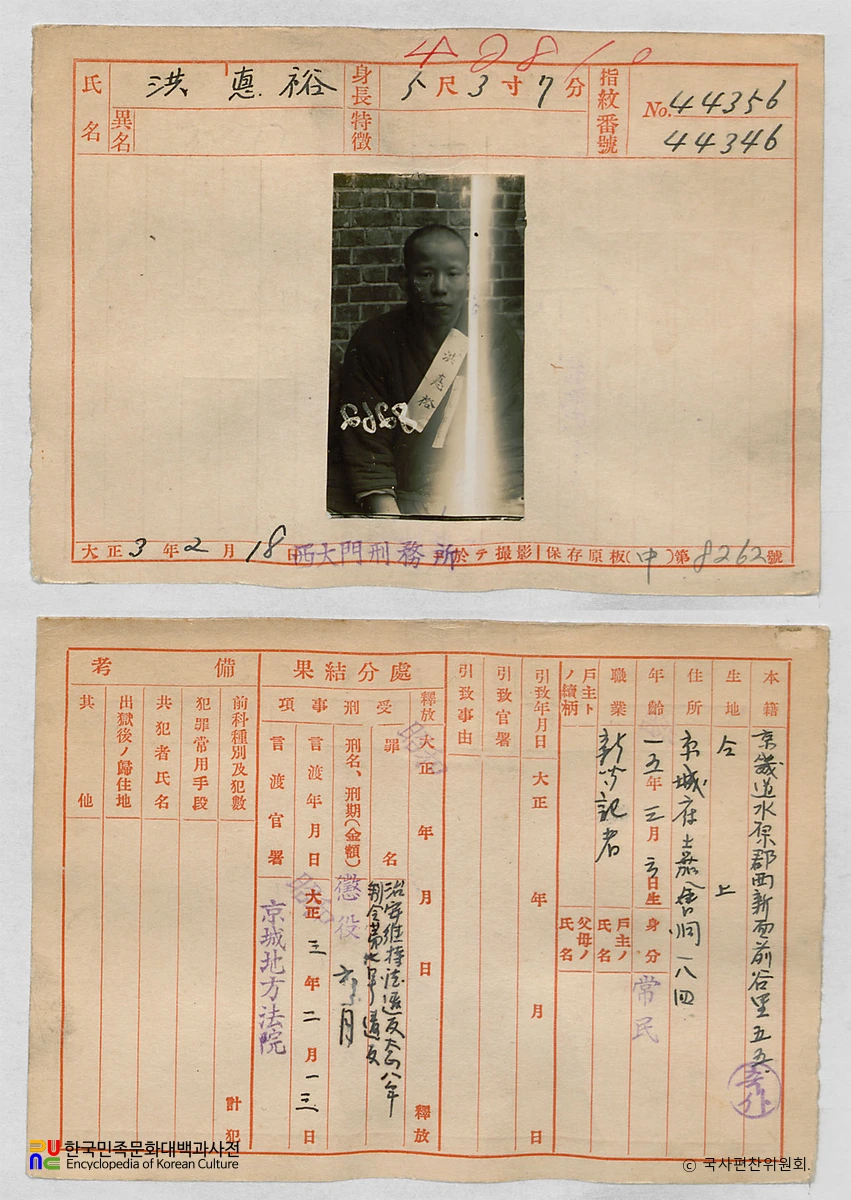 40810
氏名 洪 惪 裕
異名
身長 5 尺 3 寸 7 分
特徵
指紋番號 No. 44356
44346
洪惪裕
8262
大正 3 年 2 月 18 日 西大門刑務所 ニ於テ撮影 保存原板(中)第 8262 號
本籍 京畿道水原郡西新面前谷里五五
生地 仝上
住所 京城府
洞一八四
年齡 一五年三月 日生
身分 常民
職業 新 記者
戶主ノ氏名
戶主トノ續柄
父母ノ氏名
引致年月日 大正 年 月 日
引致官署
引致事由
處分結果
釋放 大正 年 月 日 釋放
受刑事項
罪名 治安維持法違反大正八年
制令第七號違反
刑名、刑期(金額) 懲役 六月
言渡年月日 大正 三年二月一三日
昭和
言渡官署 京城地方法院
備考
前科種別及犯數 計 犯
犯罪常用手段
共犯者氏名
出獄後ノ歸住地
其他
한국민족문화대백과사전
Encyclopedia of Korean Culture
ⓒ 국사편찬위원회.